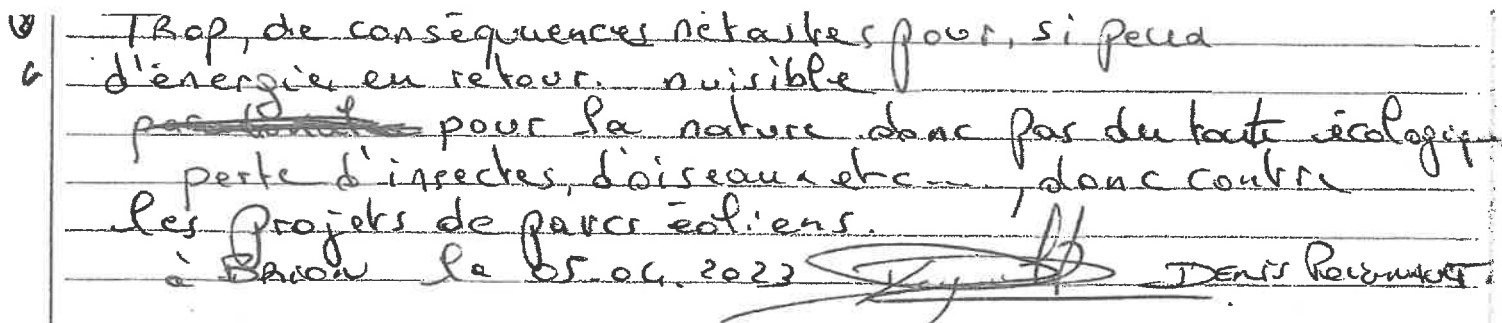 TROP, de conséquences néfastes pour, si peu
d'énergie en retour. nuisible
pour la nature donc pas du toute écologiqu
perte d'insectes, d'oiseaux etc..., donc contre
les projets de parcs éoliens.
à BRION le 05.04.2023 DENIS